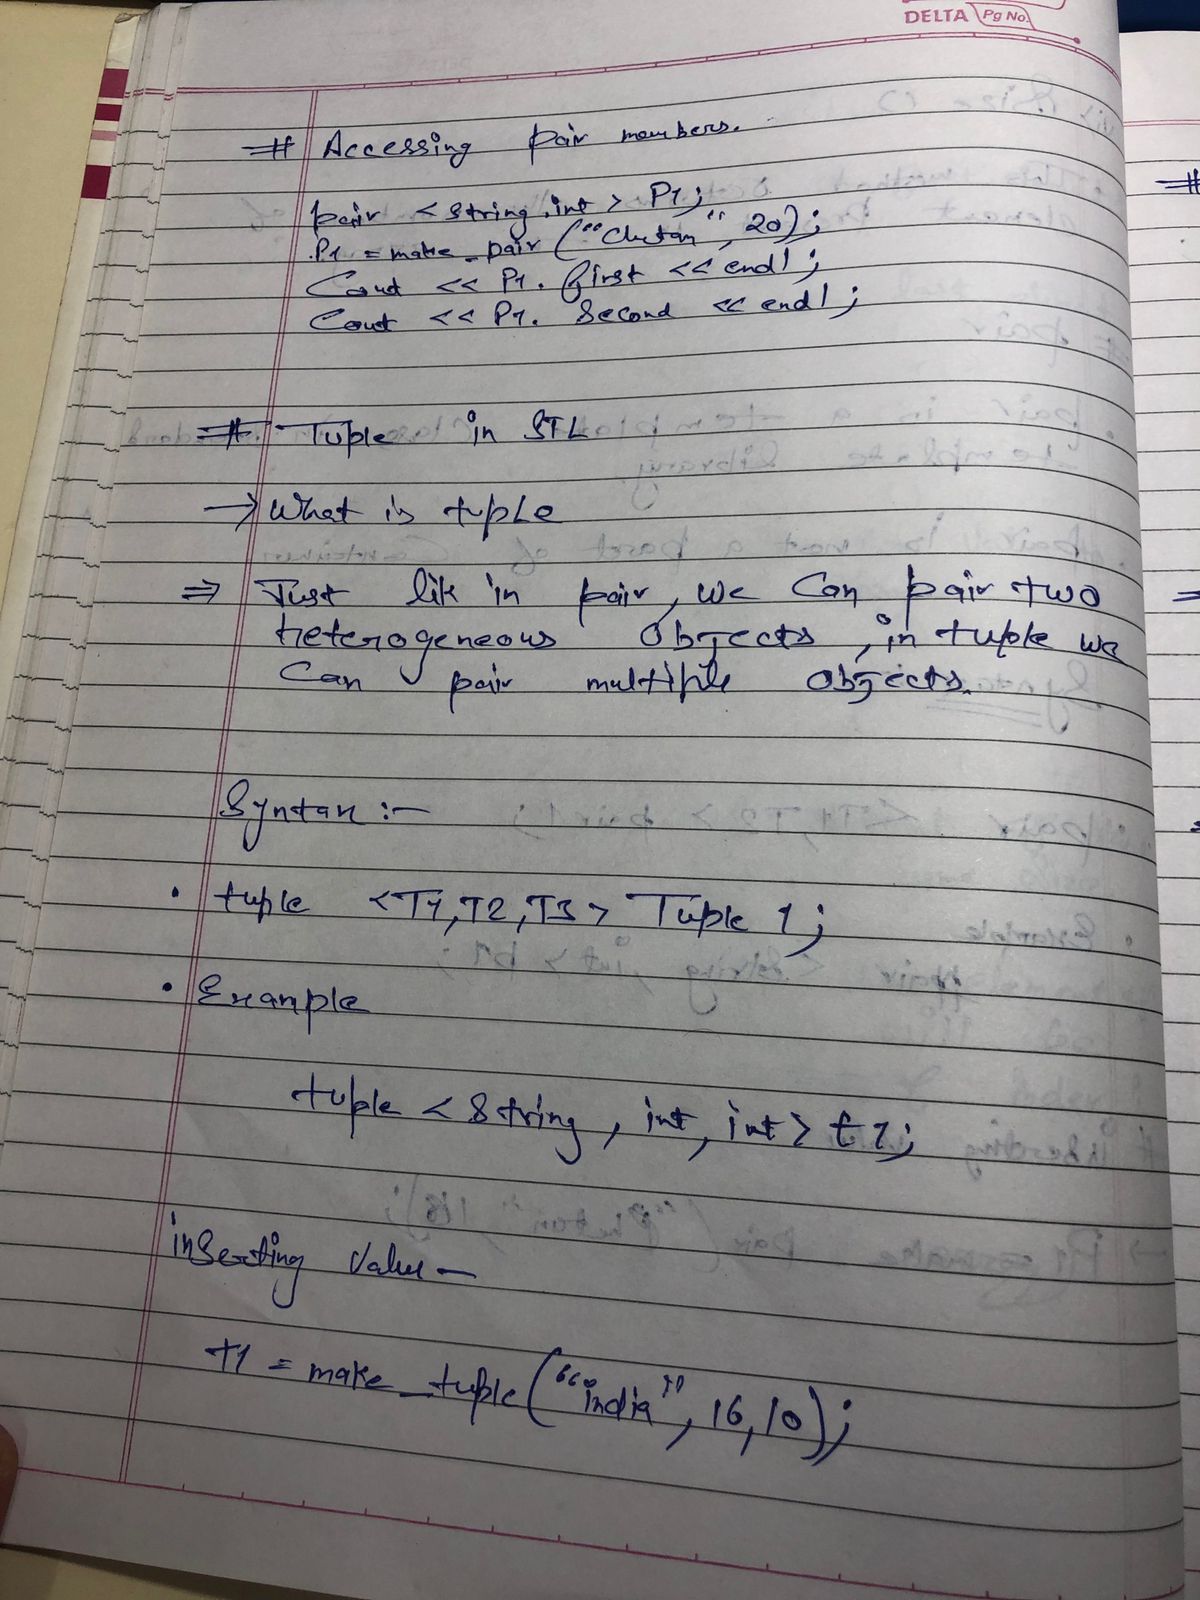 DELTA Pg No.
# Accessing pair members.
pair < string, int > P1;
P1 = make_pair (“Chetan”, 20);
Cout << P1. first << endl;
Cout << P1. Second << endl;
# Tuple in STL
→ What is tuple
⇒ Just lik in pair, we Can pair two
heterogeneous objects, in tuple we
Can pair multiple objects.
Syntax :-
• tuple <T1, T2, T3> Tuple 1;
• Example
tuple < String, int, int > t1;
inserting Value –
t1 = make_tuple (“india”, 16, 10);